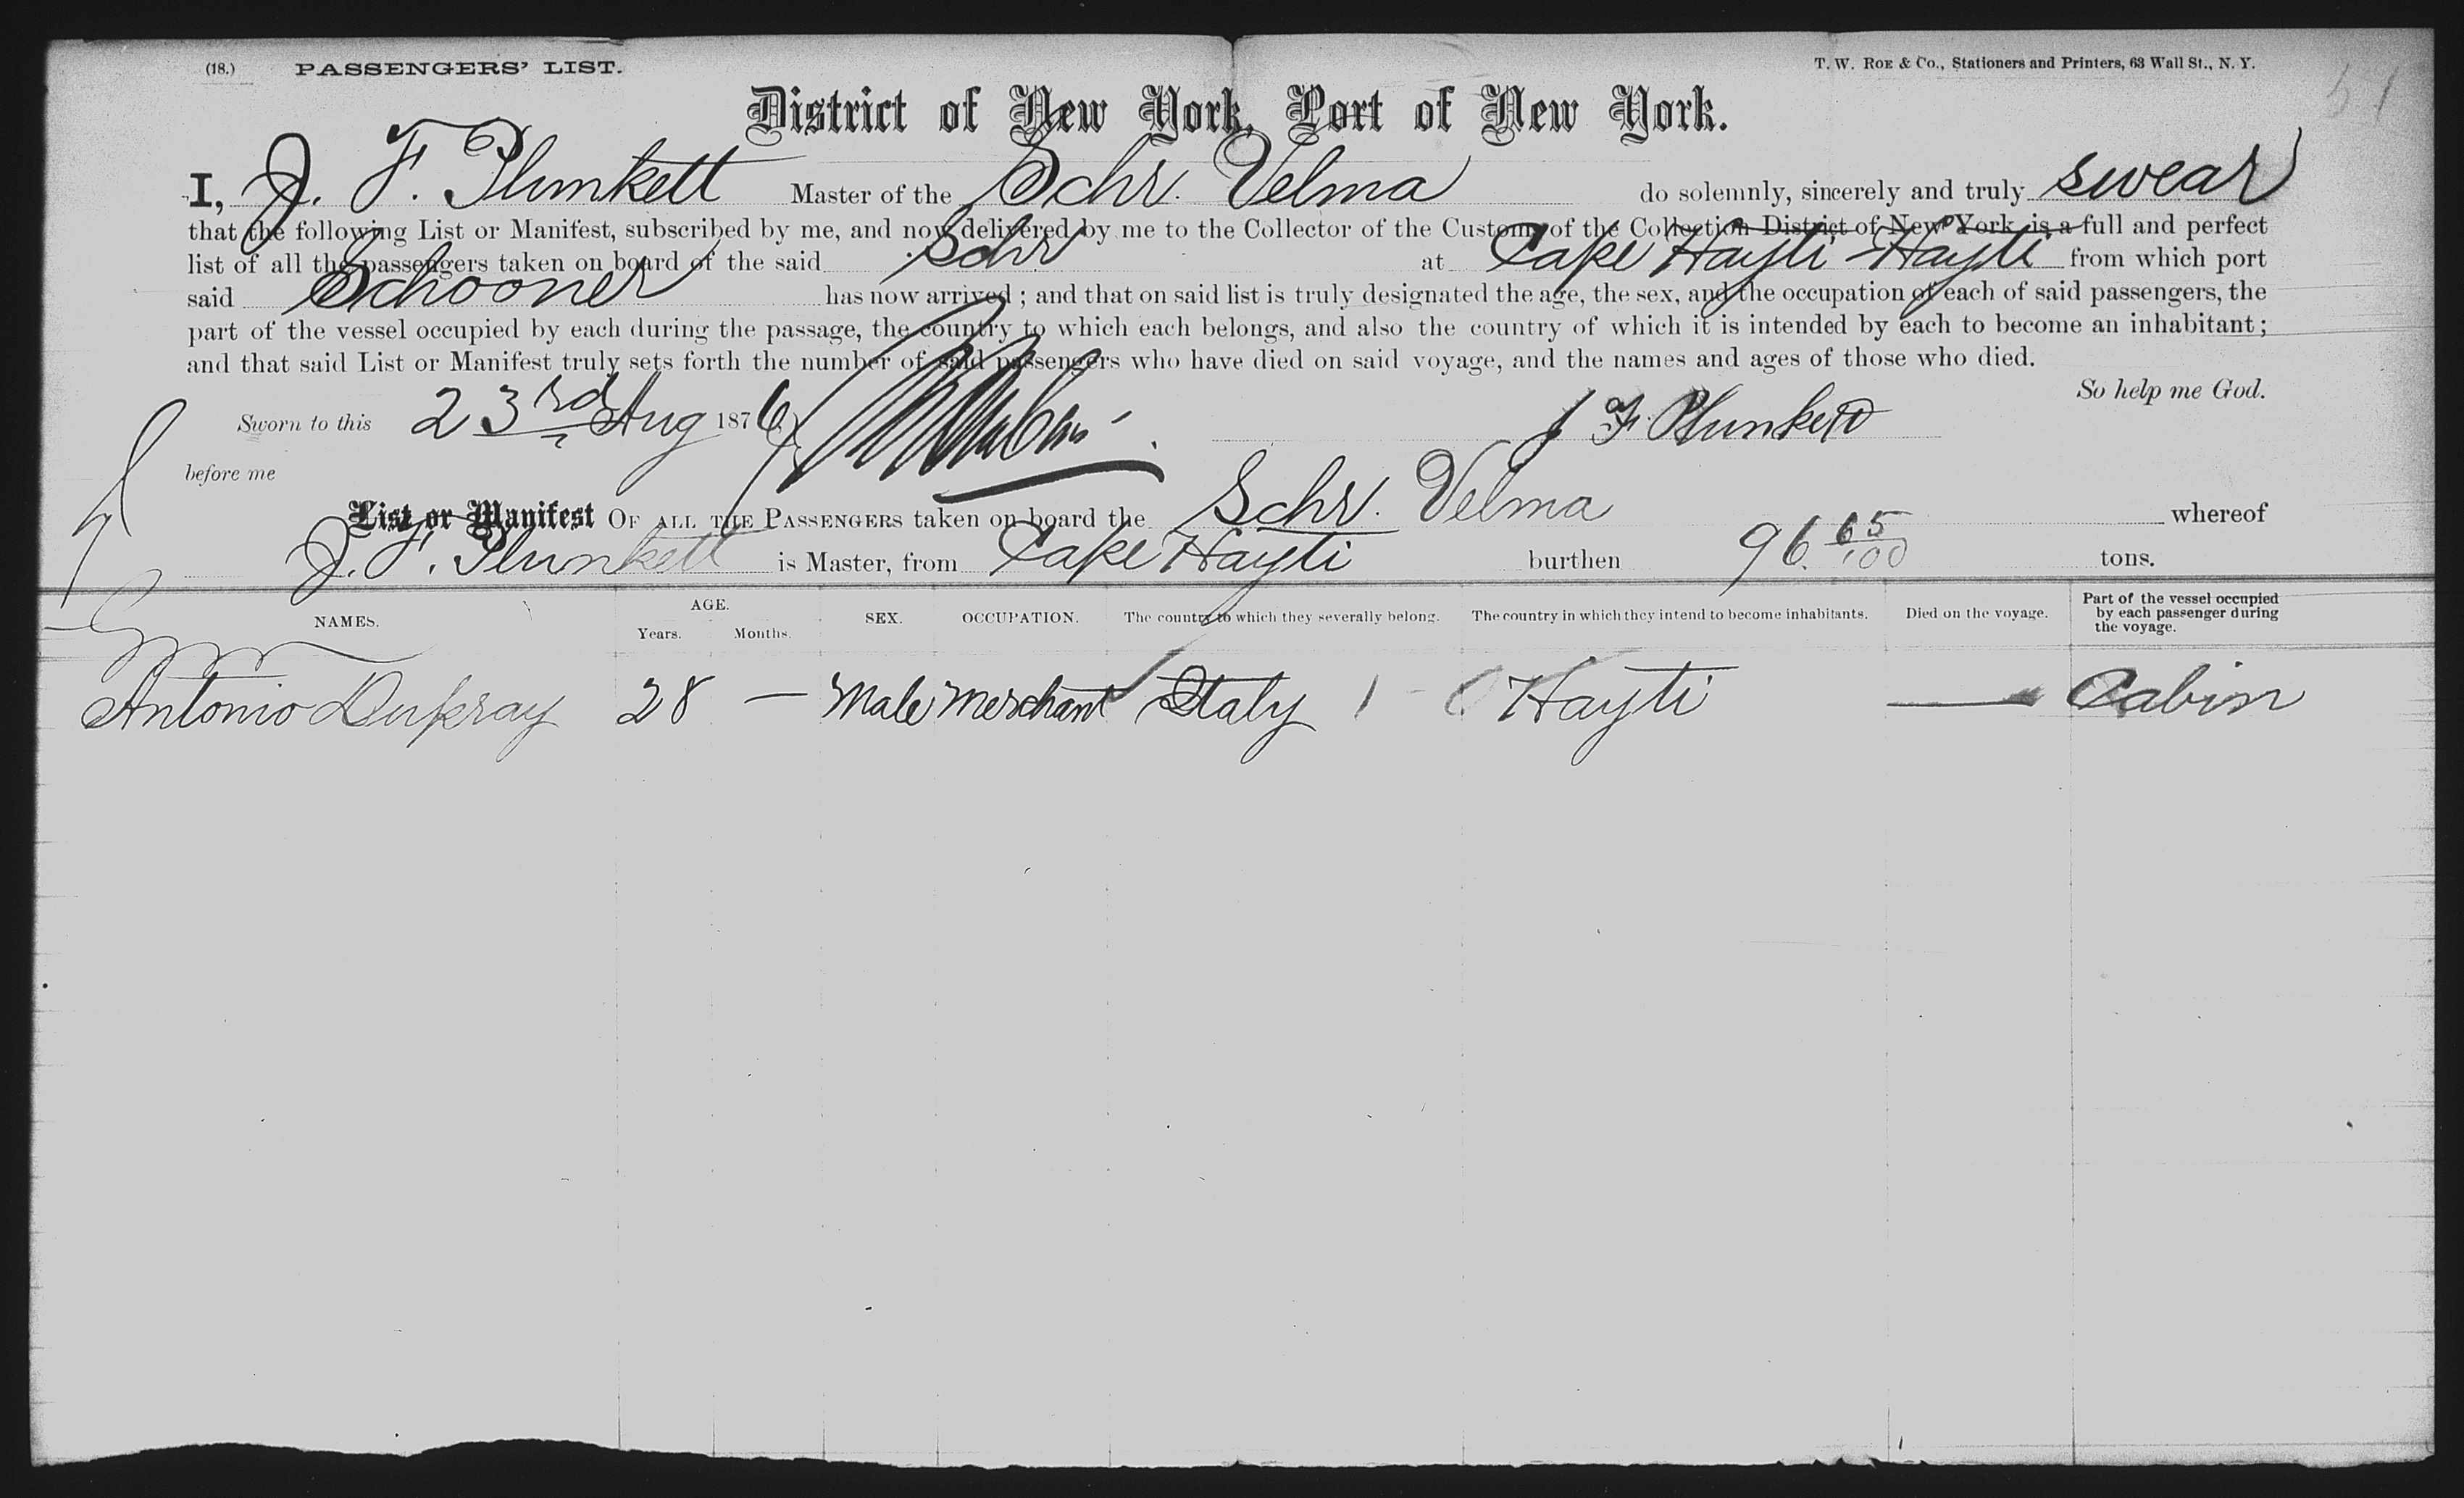 (18.) PASSENGERS' LIST. T. W. ROE & Co., Stationers and Printers, 63 Wall St., N. Y.
51
District of New York, Port of New York.
I, J. F. Plunkett Master of the Schr. Velma do solemnly, sincerely and truly swear
that the following List or Manifest, subscribed by me, and now delivered by me to the Collector of the Customs of the Collection District of New York is a full and perfect
list of all the passengers taken on board of the said Schr at Cape Hayti Hayti from which port
said Schooner has now arrived; and that on said list is truly designated the age, the sex, and the occupation of each of said passengers, the
part of the vessel occupied by each during the passage, the country to which each belongs, and also the country of which it is intended by each to become an inhabitant;
and that said List or Manifest truly sets forth the number of said passengers who have died on said voyage, and the names and ages of those who died.
So help me God.
Sworn to this 23rd Aug 1876 J F Plunkett
before me
List or Manifest OF ALL THE PASSENGERS taken on board the Schr. Velma whereof
J. F. Plunkett is Master, from Cape Hayti burthen 96. 65/100 tons.
NAMES. AGE. Years. Months. SEX. OCCUPATION. The country to which they severally belong. The country in which they intend to become inhabitants. Died on the voyage. Part of the vessel occupied by each passenger during the voyage.
Antonio Dupray 28 — Male Merchant Italy 1 Hayti — Cabin